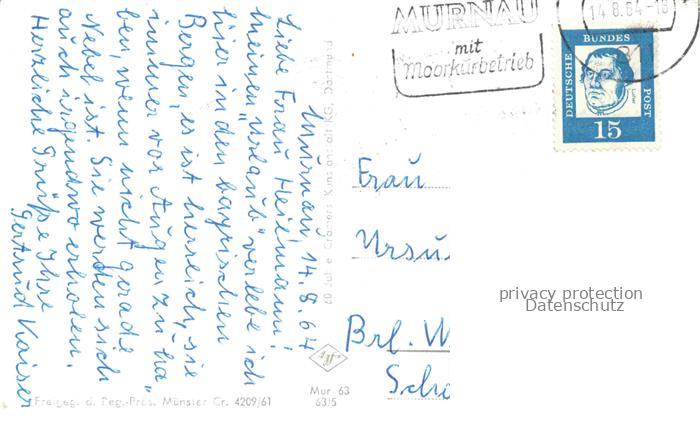 Murnau, 14.8.64
Liebe Frau Heilmann!
Meinen Urlaub verlebe ich
hier in den bayrischen
Bergen, es ist herrlich, sie
immer vor Augen zu ha-
ben, wenn nicht gerade
Nebel ist. Sie werden sich
auch irgendwo erholen.
Herzliche Grüße Ihre
Gertrud Kaiser
Freigeg. d. Reg.-Präs. Münster Cr. 4209/61
Cramers Kunstanstalt KG, Dortmund
Mur 63
63/5
Agfa
MURNAU
mit
Moorkurbetrieb
14.8.64-18
DEUTSCHE
BUNDES
POST
Luther
15
Frau
Ursu
Brl. W
Scho
privacy protection
Datenschutz